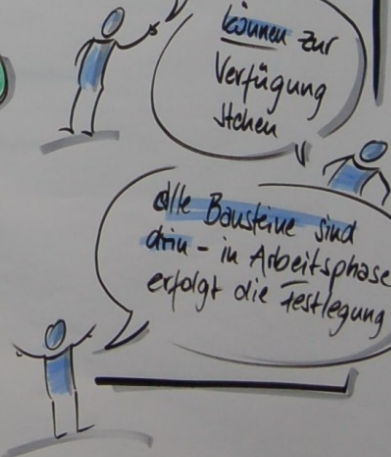 können zur
Verfügung
stehen
alle Bausteine sind
drin - in Arbeitsphase
erfolgt die Festlegung